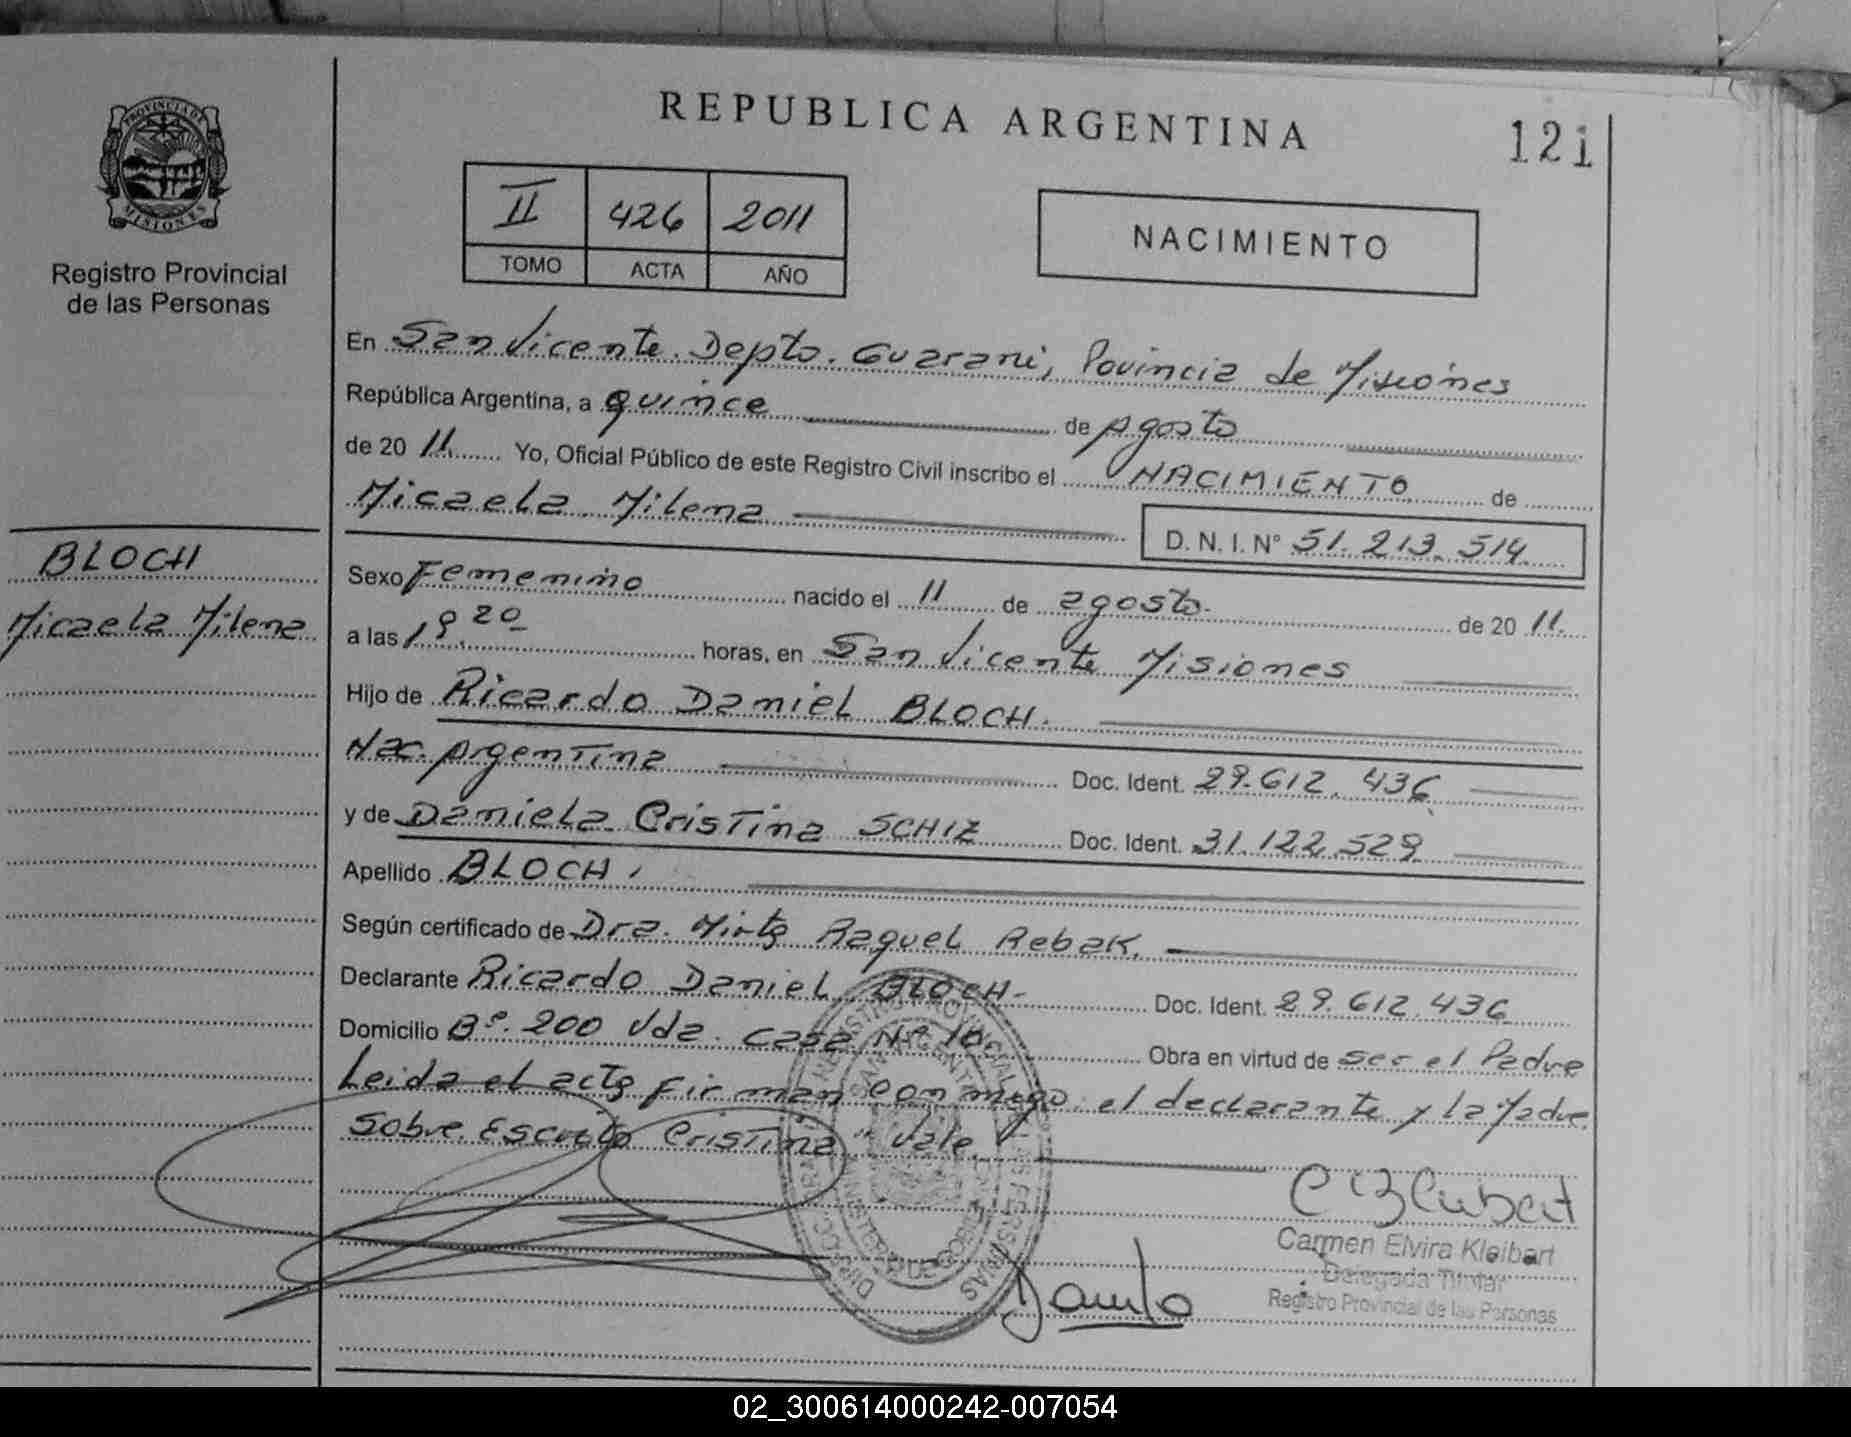 REPUBLICA ARGENTINA
121
PROVINCIA DE
MISIONES
Registro Provincial
de las Personas
II 426 2011
TOMO ACTA AÑO
NACIMIENTO
En San Vicente. Depto. Guarani, Povincia de Misiones
República Argentina, a quince de Agosto
de 20 11. Yo, Oficial Público de este Registro Civil inscribo el NACIMIENTO de
Micaela Milena
D. N. I. N° 51.213.514
BLOCH
Micaela Milena
Sexo Femenino nacido el 11 de agosto de 20 11.
a las horas, en San Vicente Misiones
Hijo de Ricardo Daniel BLOCH.
Nac. Argentina Doc. Ident. 29.612.436
y de Daniela Cristina SCHIZ Doc. Ident. 31.122.529
Apellido BLOCH.
Según certificado de Dra. Mirta Raquel Rebak.
Declarante Ricardo Daniel BLOCH- Doc. Ident. 29.612.436
Domicilio Bº. 200 Vda. Casa Nº 10. Obra en virtud de ser el Padre
Leida el acta firman conmigo. el declarante y la Madre.
Sobre Escrito Cristina" Vale.
Carmen Elvira Kleibert
Delegada Titular
Registro Provincial de las Personas
02_300614000242-007054